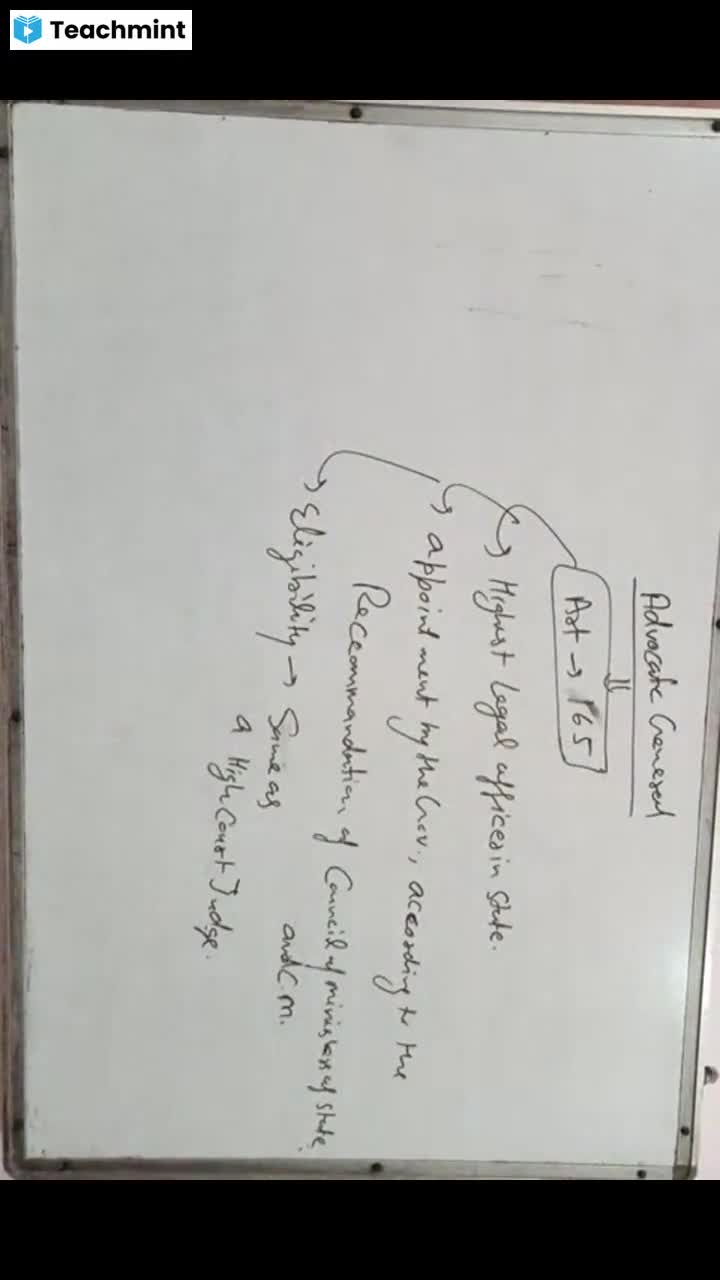 Teachmint
Advocate General
Art → 165
→ Highest Legal officer in State.
→ appointment by the Gov., according to the
Recommandation of Council of ministers of state
and C.M.
→ Eligibility → Same as
a High Court Judge.